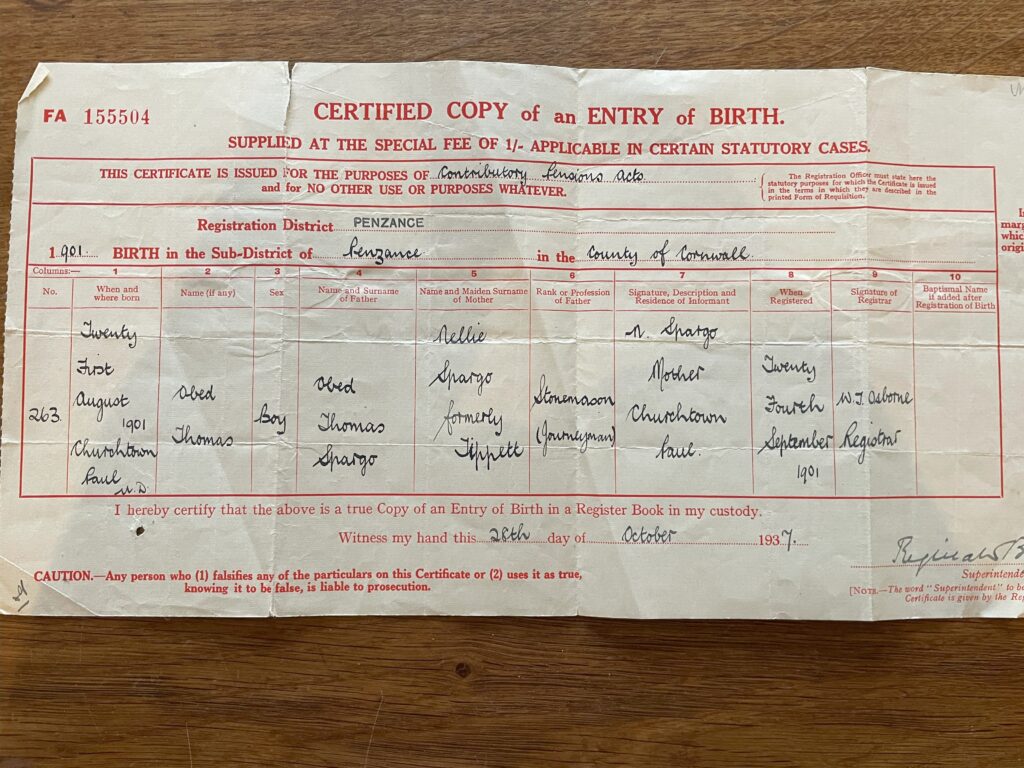 FA 155504
CERTIFIED COPY of an ENTRY of BIRTH.
SUPPLIED AT THE SPECIAL FEE OF 1/- APPLICABLE IN CERTAIN STATUTORY CASES.
THIS CERTIFICATE IS ISSUED FOR THE PURPOSES OF Contributory Pensions Acts
and for NO OTHER USE OR PURPOSES WHATEVER.
The Registration Officer must state here the
statutory purposes for which the Certificate is issued
in the terms in which they are described in the
printed Form of Requisition.
Registration District PENZANCE
1901. BIRTH in the Sub-District of Penzance in the County of Cornwall
Columns:— 1 2 3 4 5 6 7 8 9 10
No.
When and
where born
Name (if any)
Sex
Name and Surname
of Father
Name and Maiden Surname
of Mother
Rank or Profession
of Father
Signature, Description and
Residence of Informant
When
Registered
Signature of
Registrar
Baptismal Name
if added after
Registration of Birth
263.
Twenty
First
August
1901
Churchtown
Paul
U.D.
Obed
Thomas
Boy
Obed
Thomas
Spargo
Nellie
Spargo
formerly
Tippett
Stonemason
(Journeyman)
N. Spargo
Mother
Churchtown
Paul.
Twenty
Fourth
September
1901
W.J. Osborne
Registrar
I hereby certify that the above is a true Copy of an Entry of Birth in a Register Book in my custody.
Witness my hand this 28th day of October 1937.
Reginald
Superintende
CAUTION.—Any person who (1) falsifies any of the particulars on this Certificate or (2) uses it as true,
knowing it to be false, is liable to prosecution.
[NOTE.—The word "Superintendent" to be
Certificate is given by the Reg
marg
whic
origi